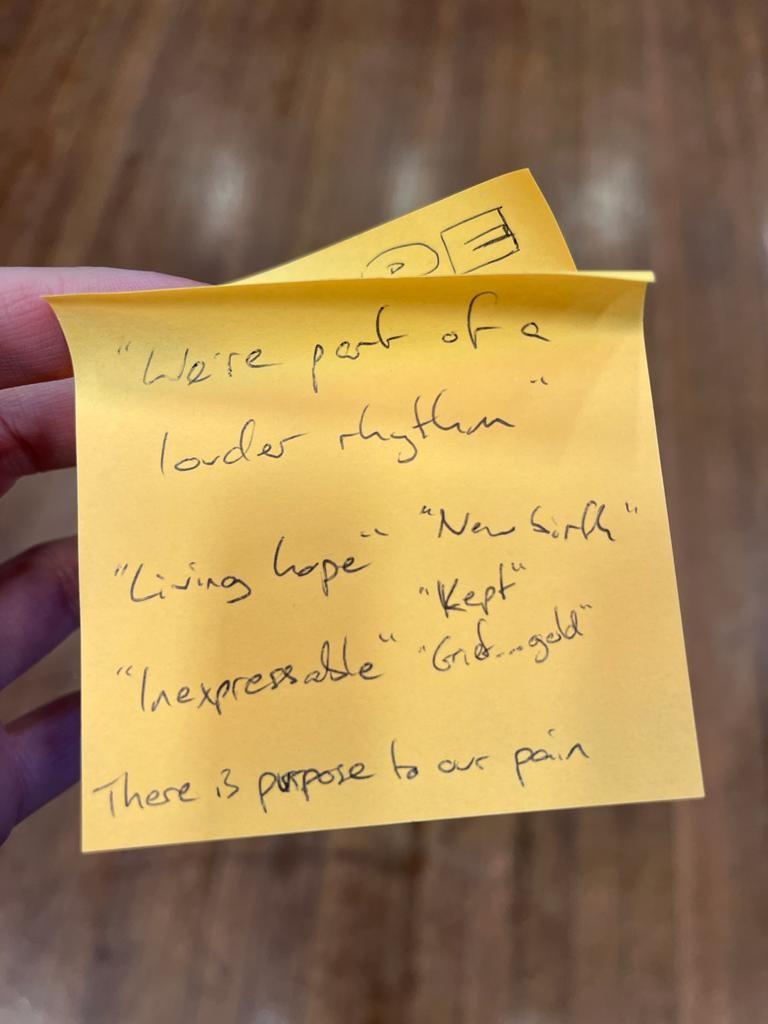 "We're part of a
louder rhythm"
"Living hope" "New birth"
"Kept"
"Inexpressable" "Grief...gold"
There is purpose to our pain